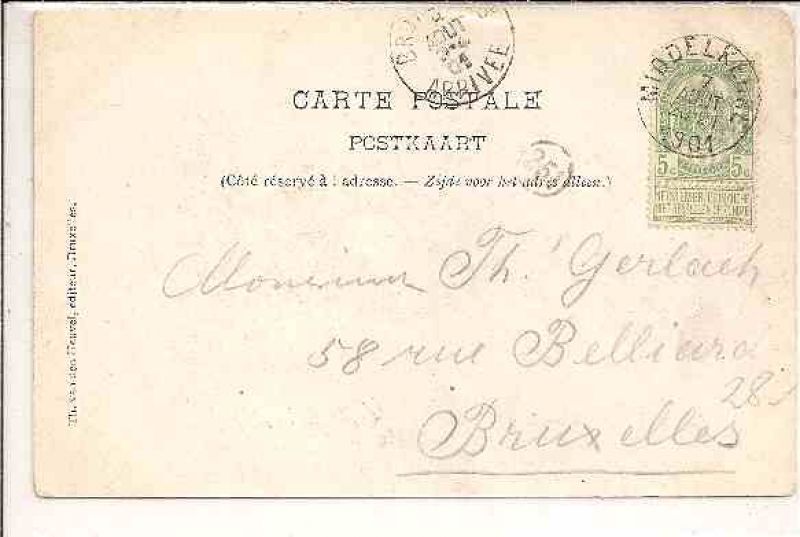 ARRIVÉE
AOUT
CARTE POSTALE
POSTKAART
(Côté réservé à l'adresse. — Zijde voor het adres alleen.)
MIDDELKERKE
7
AOUT
1901
5c 5c
Monsieur Th. Gerlach
58 rue Belliard
28
Bruxelles
Th. van den Heuvel, éditeur, Bruxelles.